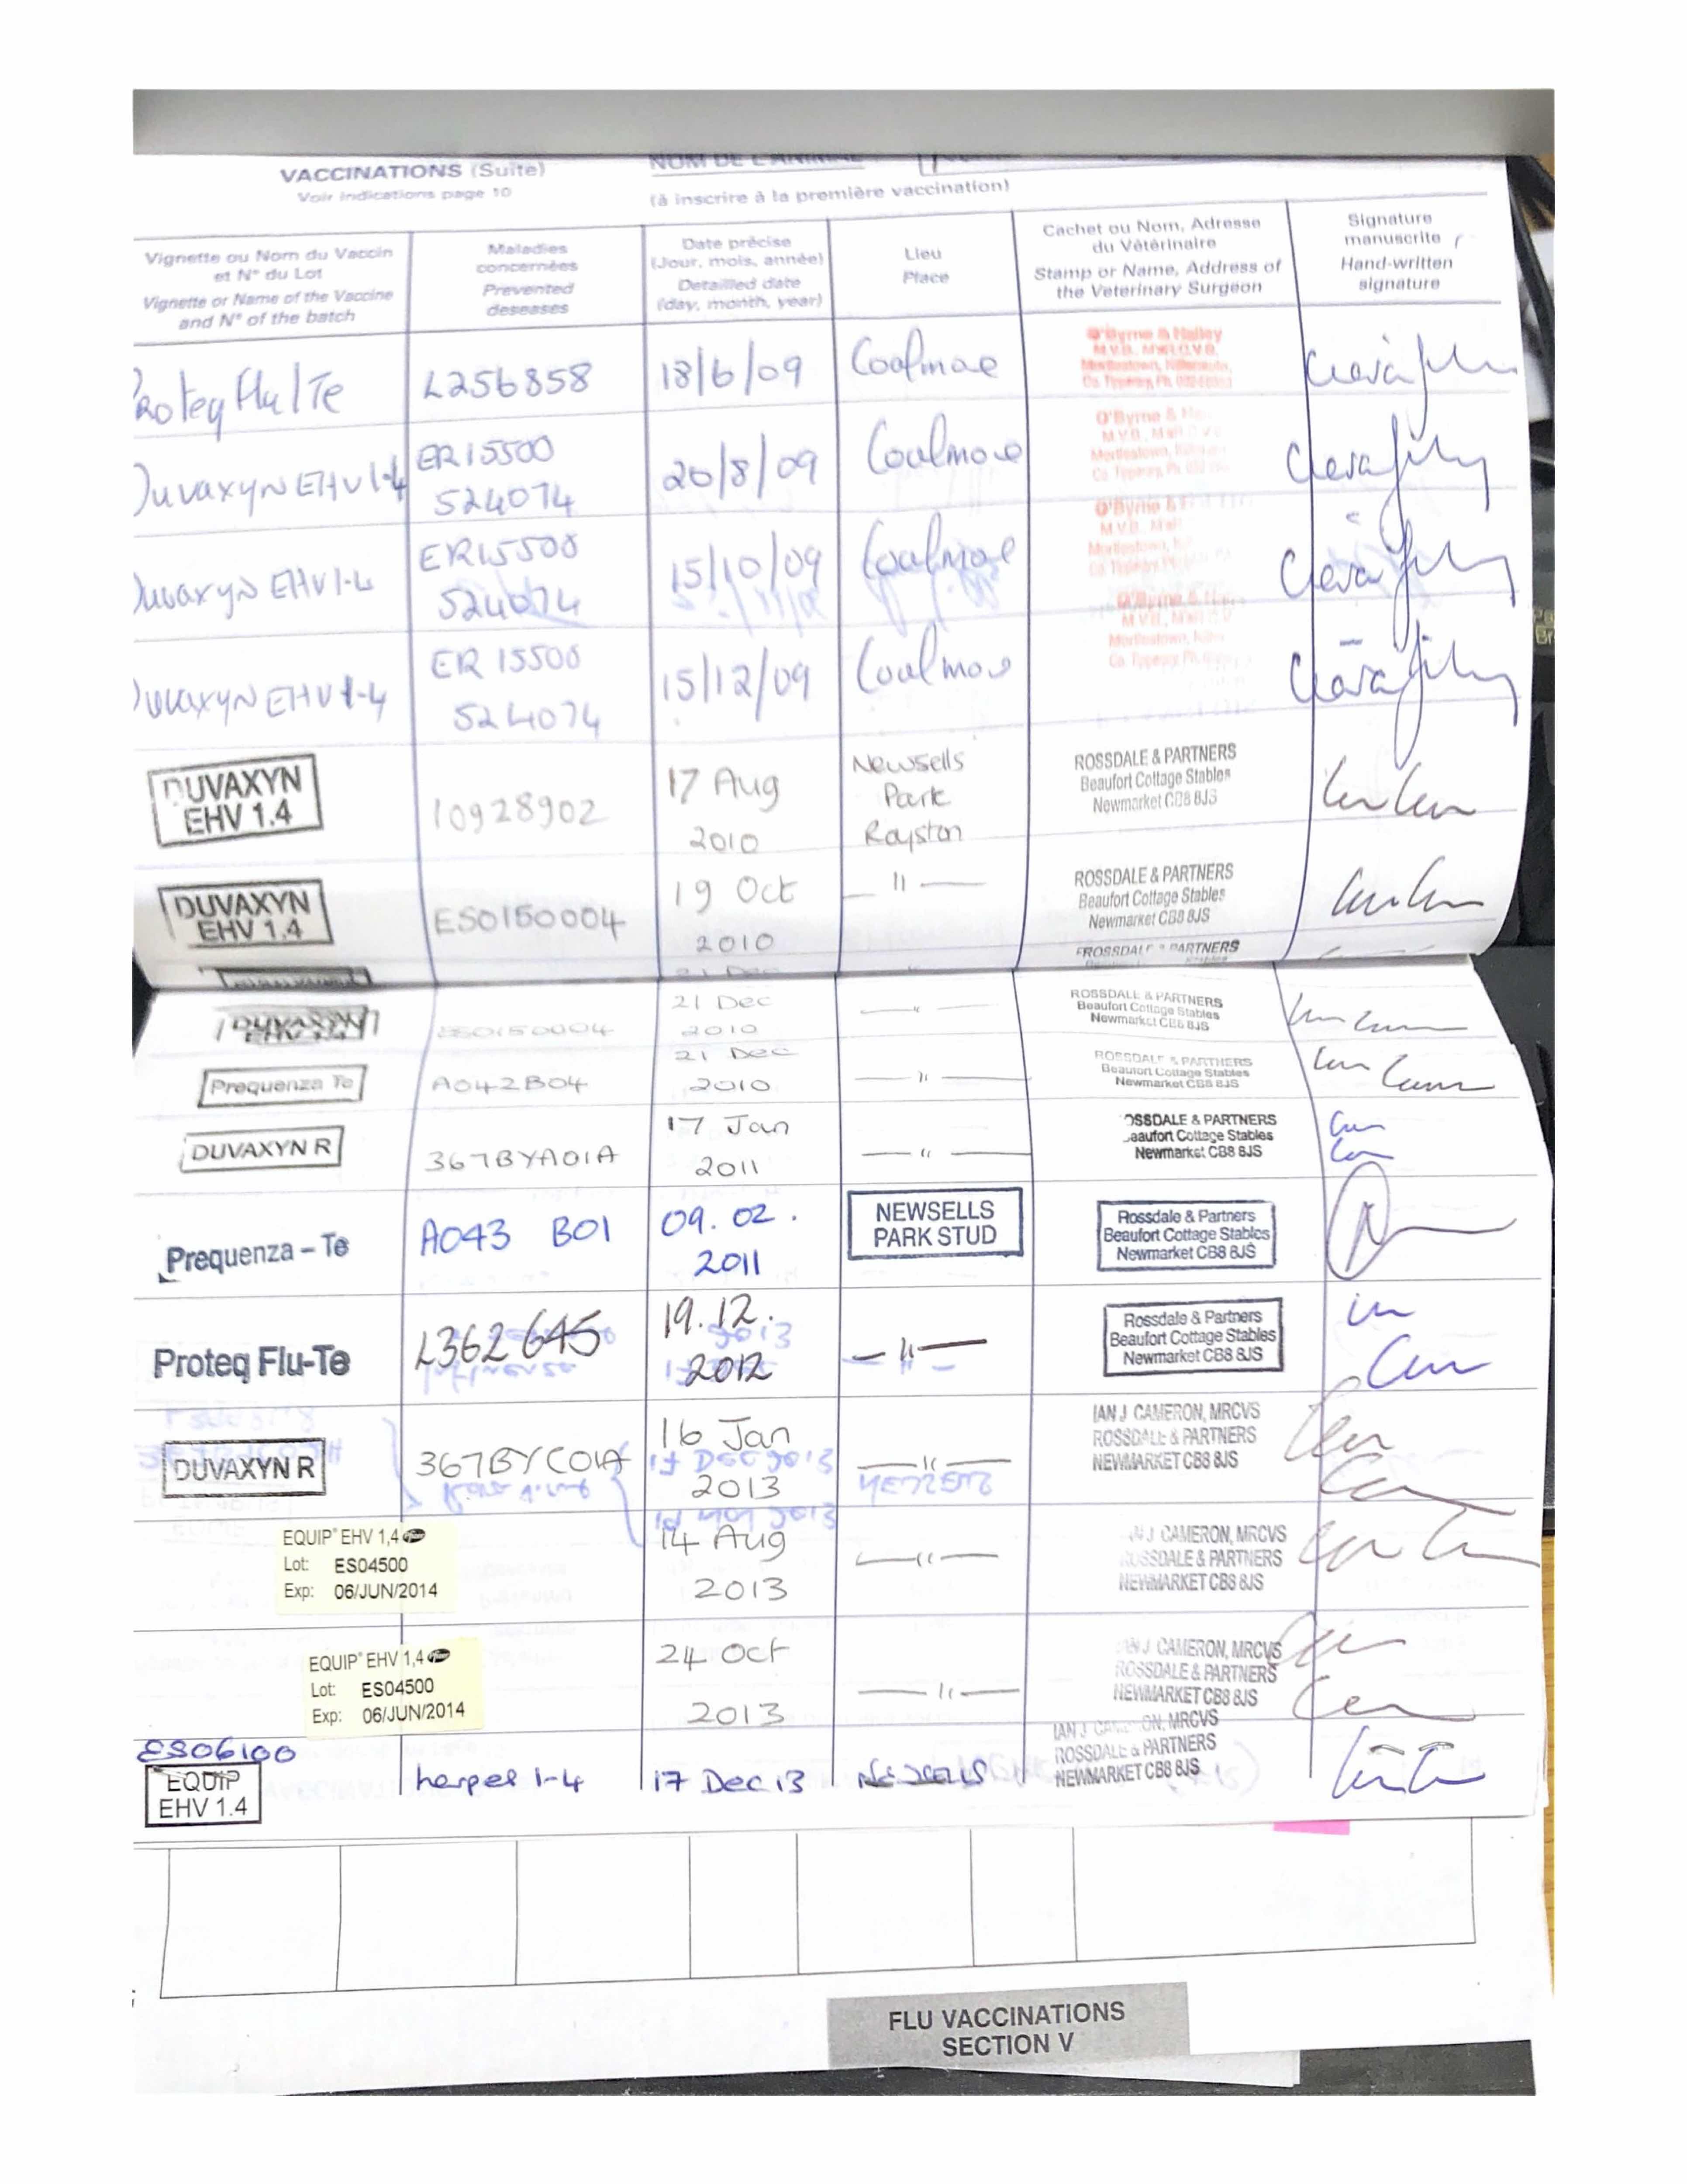 VACCINATIONS (Suite)
Voir indications page 10
NOM DE L'ANIMAL
(à inscrire à la première vaccination)
Vignette ou Nom du Vaccin
et N° du Lot
Vignette or Name of the Vaccine
and N° of the batch
Maladies
concernées
Prevented
deseases
Date précise
(Jour, mois, année)
Detailled date
(day, month, year)
Lieu
Place
Cachet ou Nom, Adresse
du Vétérinaire
Stamp or Name, Address of
the Veterinary Surgeon
Signature
manuscrite
Hand-written
signature
Proteq Flu/Te
L256858
18/6/09
Coolmore
O'Byrne & Halley
Duvaxyn EHV 1-4
ER15500
524074
20/8/09
Coolmore
O'Byrne &
Duvaxyn EHV 1-4
ER15500
524074
15/10/09
Coolmore
O'Byrne &
Duvaxyn EHV 1-4
ER 15500
524074
15/12/09
Coolmore
DUVAXYN
EHV 1.4
10928902
17 Aug
2010
Newsells
Park
Royston
ROSSDALE & PARTNERS
Beaufort Cottage Stables
Newmarket CB8 8JS
DUVAXYN
EHV 1.4
ES0150004
19 Oct
2010
—〃—
ROSSDALE & PARTNERS
Beaufort Cottage Stables
Newmarket CB8 8JS
ROSSDALE & PARTNERS
21 Dec
DUVAXYN
ES0150004
21 Dec
2010
—〃—
ROSSDALE & PARTNERS
Beaufort Cottage Stables
Newmarket CB8 8JS
Prequenza Te
A042B04
21 Dec
2010
—〃—
ROSSDALE & PARTNERS
Beaufort Cottage Stables
Newmarket CB8 8JS
DUVAXYN R
367BYA01A
17 Jan
2011
—〃—
OSSDALE & PARTNERS
eaufort Cottage Stables
Newmarket CB8 8JS
Prequenza - Te
A043 B01
09. 02.
2011
NEWSELLS
PARK STUD
Rossdale & Partners
Beaufort Cottage Stables
Newmarket CB8 8JS
Proteq Flu-Te
L362645
19.12.
2012
—〃—
Rossdale & Partners
Beaufort Cottage Stables
Newmarket CB8 8JS
DUVAXYN R
367BYC01A
16 Jan
2013
—〃—
IAN J CAMERON, MRCVS
ROSSDALE & PARTNERS
NEWMARKET CB8 8JS
EQUIP® EHV 1,4
Lot: ES04500
Exp: 06/JUN/2014
14 Aug
2013
—〃—
J CAMERON, MRCVS
ROSSDALE & PARTNERS
NEWMARKET CB8 8JS
EQUIP® EHV 1,4
Lot: ES04500
Exp: 06/JUN/2014
24 Oct
2013
—〃—
J CAMERON, MRCVS
ROSSDALE & PARTNERS
NEWMARKET CB8 8JS
ES06100
EQUIP
EHV 1.4
herpes 1-4
17 Dec 13
Newsells
IAN J CAMERON, MRCVS
ROSSDALE & PARTNERS
NEWMARKET CB8 8JS
FLU VACCINATIONS
SECTION V